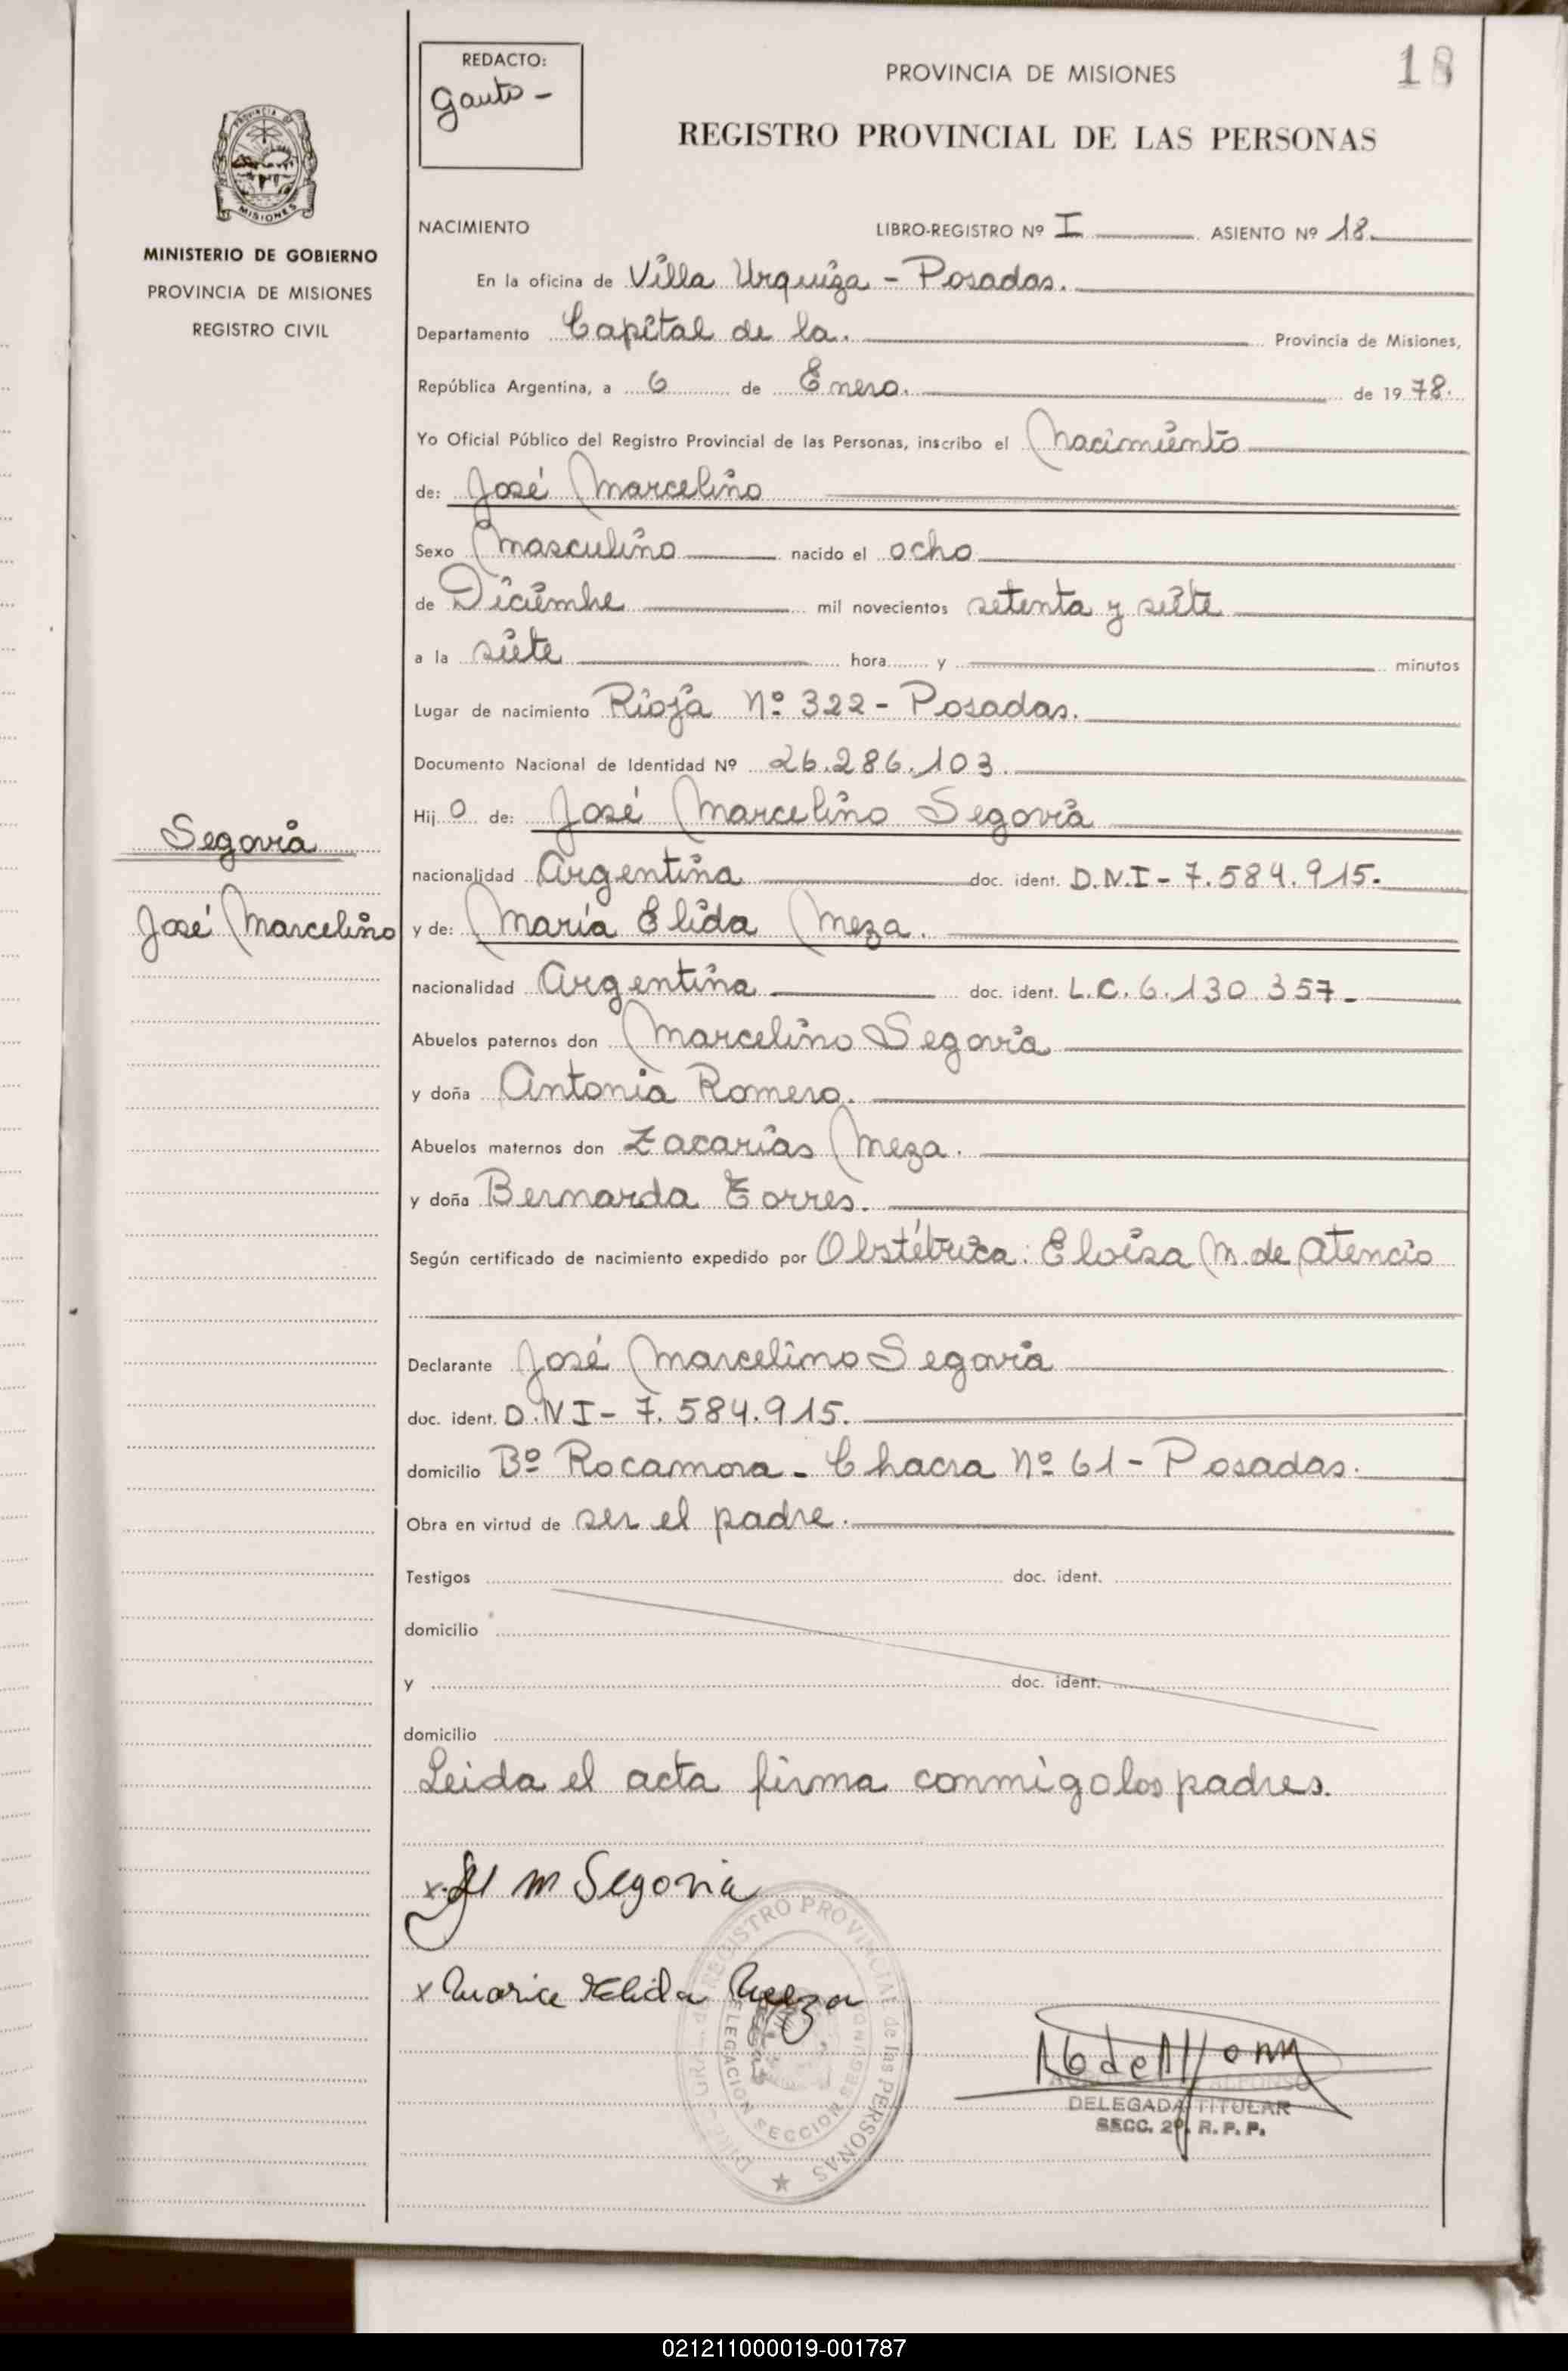 18
REDACTO:
Gauto -
PROVINCIA DE MISIONES
REGISTRO PROVINCIAL DE LAS PERSONAS
PROVINCIA DE
MISIONES
MINISTERIO DE GOBIERNO
PROVINCIA DE MISIONES
REGISTRO CIVIL
NACIMIENTO LIBRO-REGISTRO Nº I ASIENTO Nº 18.
En la oficina de Villa Urquiza - Posadas.
Departamento Capital de la. Provincia de Misiones,
República Argentina, a 6 de Enero. de 1978.
Yo Oficial Público del Registro Provincial de las Personas, inscribo el Nacimiento
de: José Marcelino
Sexo Masculino nacido el ocho
de Diciembre mil novecientos setenta y siete
a la siete hora y minutos
Lugar de nacimiento Rioja Nº 322 - Posadas.
Documento Nacional de Identidad Nº 26.286.103.
Hij o de: José Marcelino Segovia
Segovia
nacionalidad Argentina doc. ident. D.N.I - 7.584.915-
José Marcelino
y de: María Elida Meza.
nacionalidad Argentina doc. ident. L.C. 6.130.357-
Abuelos paternos don Marcelino Segovia
y doña Antonia Romero.
Abuelos maternos don Zacarías Meza.
y doña Bernarda Torres.
Según certificado de nacimiento expedido por Obstétrica: Eloisa M. de Atencio
Declarante José Marcelino Segovia
doc. ident. D.N.I - 7.584.915.
domicilio Bº Rocamora - Chacra Nº 61 - Posadas.
Obra en virtud de ser el padre.
Testigos doc. ident.
domicilio
y doc. ident.
domicilio
Leida el acta firma conmigo los padres.
x J M Segovia
x Maria Elida Meza
REGISTRO PROVINCIAL de las PERSONAS
DELEGACION SECCION
MISIONES
DELEGADA TITULAR
SECC. 2ª. R. P. P.
021211000019-001787